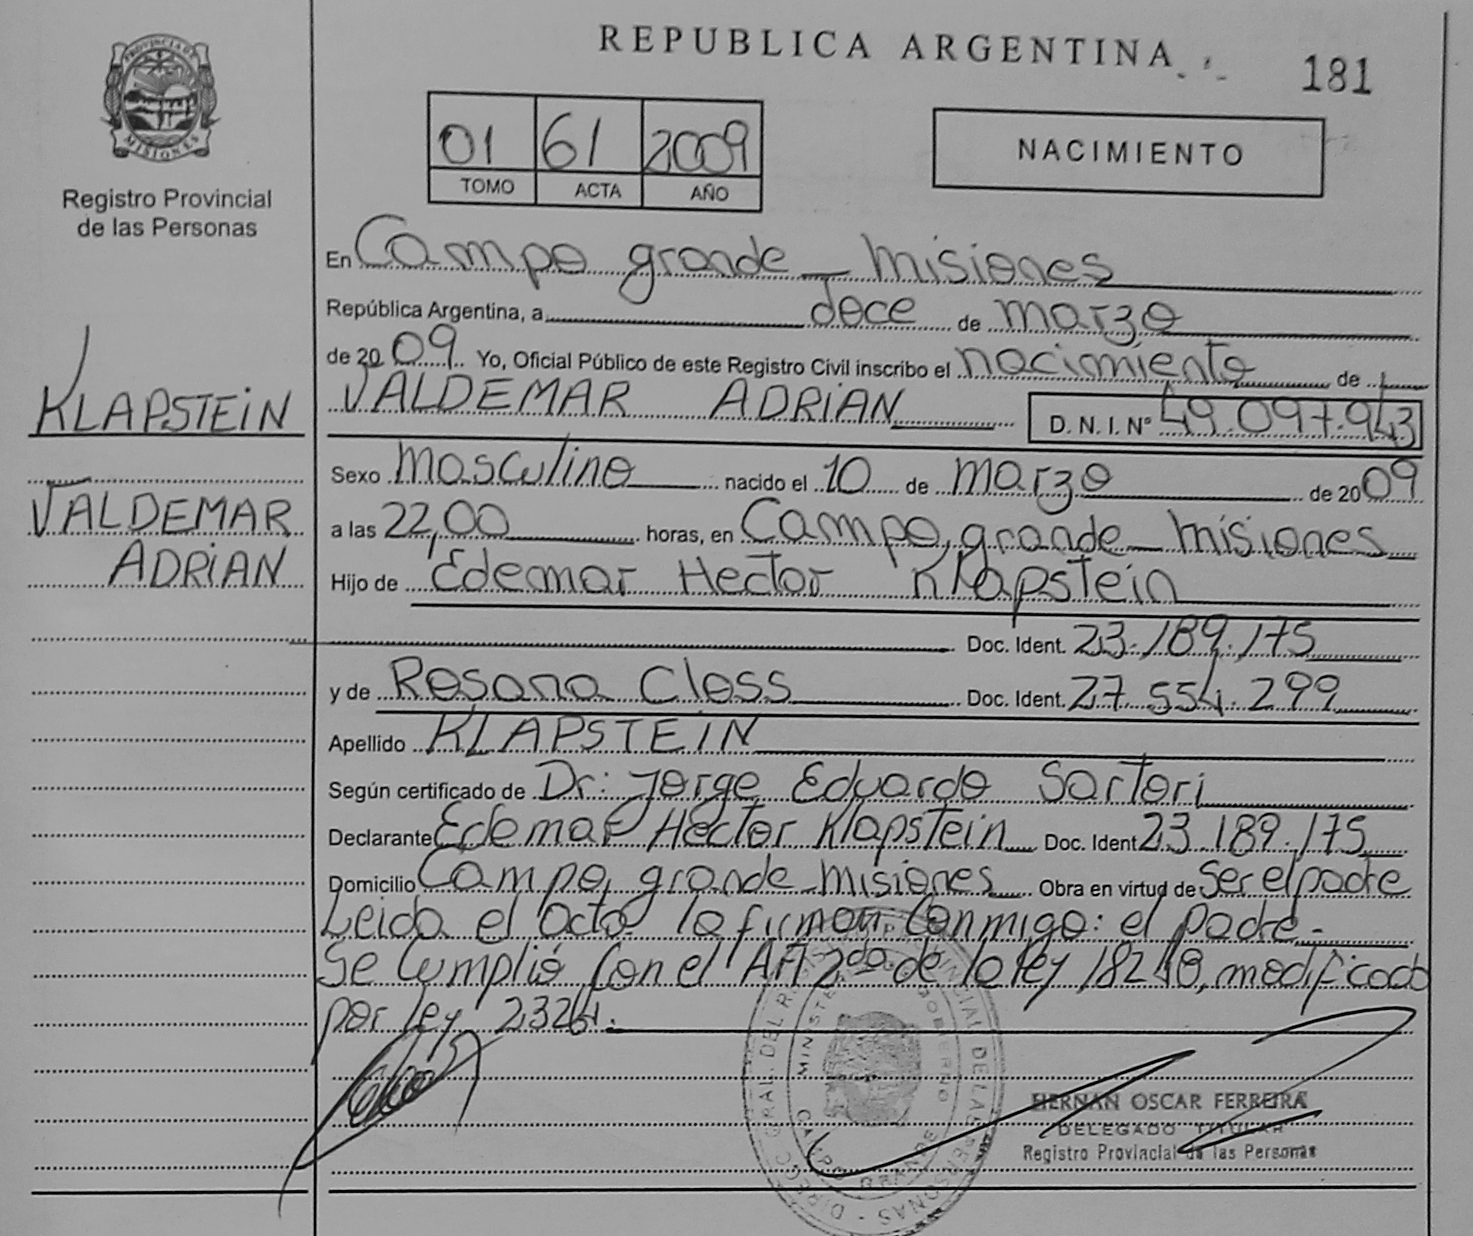 REPUBLICA ARGENTINA
181
PROVINCIA DE MISIONES
Registro Provincial
de las Personas
01 61 2009
TOMO ACTA AÑO
NACIMIENTO
En Campo grande - misiones
República Argentina, a doce de marzo
de 2009 Yo, Oficial Público de este Registro Civil inscribo el nacimiento de
VALDEMAR ADRIAN D. N. I. N° 49.097.943
KLAPSTEIN
Sexo masculino nacido el 10 de marzo de 2009
VALDEMAR
ADRIAN
a las 22,00 horas, en Campo grande - misiones
Hijo de Edemar Hector Klapstein
Doc. Ident. 23.189.175
y de Rosana Closs Doc. Ident. 27.554.299
Apellido KLAPSTEIN
Según certificado de Dr: Jorge Eduardo Sartori
Declarante Edemar Hector Klapstein Doc. Ident 23.189.175
Domicilio Campo grande - misiones Obra en virtud de Ser el padre
Leida el acta la firman Conmigo: el padre -
Se Cumplió Con el Art 2do de la ley 18248, modificado
por ley 23264.
DIREC. GRAL. DEL REGISTRO PROVINCIAL DE LAS PERSONAS
MINISTERIO GOBIERNO
CAMPO GRANDE
HERNAN OSCAR FERREIRA
DELEGADO TITULAR
Registro Provincial de las Personas